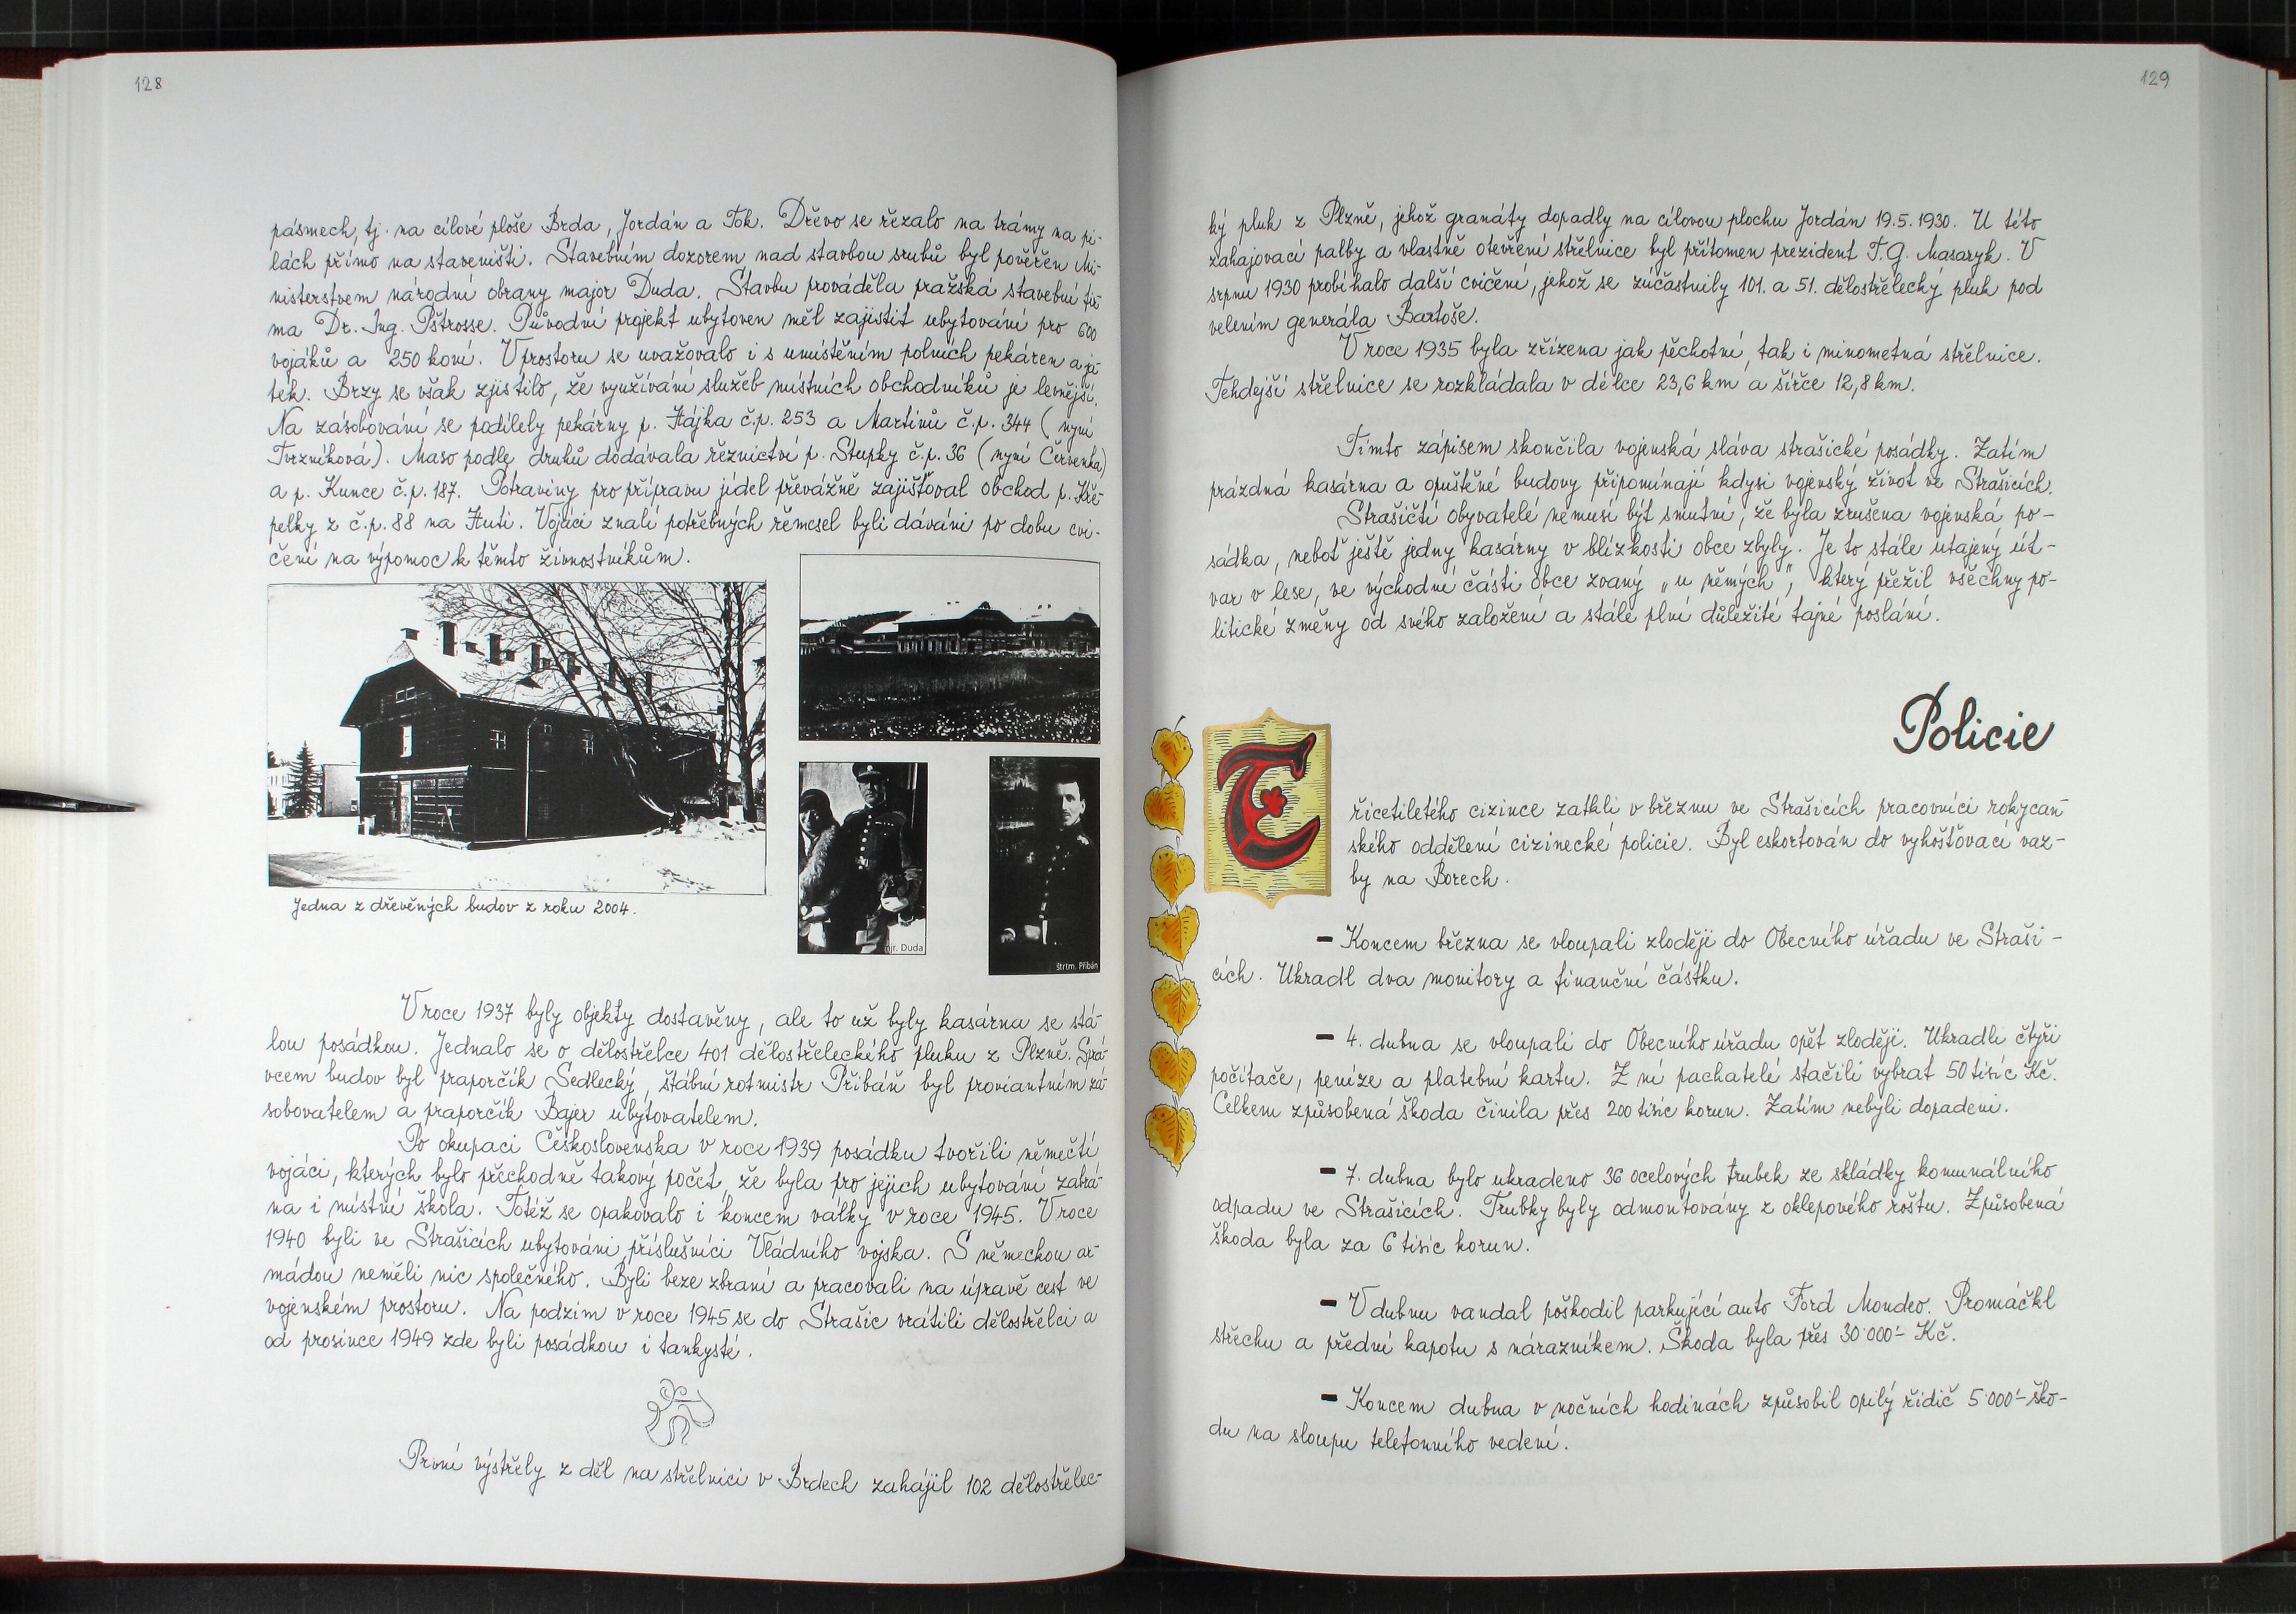 128
pásmech, tj. na cílové ploše Brda, Jordán a Tok. Dřevo se řezalo na trámy na pi-
lách přímo na staveništi. Stavebním dozorem nad stavbou srubů byl pověřen Mi-
nisterstvem národní obrany major Duda. Stavbu prováděla pražská stavební fir-
ma Dr. Ing. Pštrosse. Původní projekt ubytoven měl zajistit ubytování pro 600
vojáků a 250 koní. V prostoru se uvažovalo i s umístěním polních pekáren a ja-
tek. Brzy se však zjistilo, že využívání služeb místních obchodníků je levnější.
Na zásobování se podílely pekárny p. Hájka č.p. 253 a Martinů č.p. 344 (nyní
Tvrzníková). Maso podle druhů dodávala řeznictví p. Stupky č.p. 36 (nyní Červenka)
a p. Kunce č.p. 187. Potraviny pro přípravu jídel převážně zajišťoval obchod p. Kře-
pelky z č.p. 88 na Huti. Vojáci znalí potřebných řemesel byli dáváni po dobu cvi-
čení na výpomoc k těmto živnostníkům.
Jedna z dřevěných budov z roku 2004.
mjr. Duda
štrtm. Přibáň
V roce 1937 byly objekty dostavěny, ale to už byly kasárna se stá-
lou posádkou. Jednalo se o dělostřelce 401 dělostřeleckého pluku z Plzně. Sprá-
vcem budov byl praporčík Sedlecký, štábní rotmistr Přibáň byl proviantním zá-
sobovatelem a praporčík Bajer ubytovatelem.
Po okupaci Československa v roce 1939 posádku tvořili němečtí
vojáci, kterých bylo přechodně takový počet, že byla pro jejich ubytování zabrá-
na i místní škola. Totéž se opakovalo i koncem války v roce 1945. V roce
1940 byli ve Strašicích ubytováni příslušníci Vládního vojska. S německou ar-
mádou neměli nic společného. Byli beze zbraní a pracovali na úpravě cest ve
vojenském prostoru. Na podzim v roce 1945 se do Strašic vrátili dělostřelci a
od prosince 1949 zde byli posádkou i tankysté.
První výstřely z děl na střelnici v Brdech zahájil 102 dělostřelec-
129
ký pluk z Plzně, jehož granáty dopadly na cílovou plochu Jordán 19.5.1930. U této
zahajovací palby a vlastně otevření střelnice byl přítomen prezident T.G. Masaryk. V
srpnu 1930 probíhalo další cvičení, jehož se zúčastnily 101. a 51. dělostřelecký pluk pod
velením generála Bartoše.
V roce 1935 byla zřízena jak pěchotní, tak i minometná střelnice.
Tehdejší střelnice se rozkládala v délce 23,6 km a šířce 12,8 km.
Tímto zápisem skončila vojenská sláva strašické posádky. Zatím
prázdná kasárna a opuštěné budovy připomínají kdysi vojenský život ve Strašicích.
Strašičtí obyvatelé nemusí být smutní, že byla zrušena vojenská po-
sádka, neboť ještě jedny kasárny v blízkosti obce zbyly. Je to stále utajený út-
var v lese, ve východní části obce zvaný „u němých", který přežil všechny po-
litické změny od svého založení a stále plní důležité tajné poslání.
Policie
Třicetiletého cizince zatkli v březnu ve Strašicích pracovníci rokycan-
ského oddělení cizinecké policie. Byl eskortován do vyhošťovací vaz-
by na Borech.
- Koncem března se vloupali zloději do Obecního úřadu ve Straši-
cích. Ukradl dva monitory a finanční částku.
- 4. dubna se vloupali do Obecního úřadu opět zloději. Ukradli čtyři
počítače, peníze a platební kartu. Z ní pachatelé stačili vybrat 50 tisíc Kč.
Celkem způsobená škoda činila přes 200 tisíc korun. Zatím nebyli dopadeni.
- 7. dubna bylo ukradeno 36 ocelových trubek ze skládky komunálního
odpadu ve Strašicích. Trubky byly odmontovány z oklepového roštu. Způsobená
škoda byla za 6 tisíc korun.
- V dubnu vandal poškodil parkující auto Ford Mondeo. Promáčkl
střechu a přední kapotu s nárazníkem. Škoda byla přes 30'000'- Kč.
- Koncem dubna v nočních hodinách způsobil opilý řidič 5'000'- ško-
du na sloupu telefonního vedení.